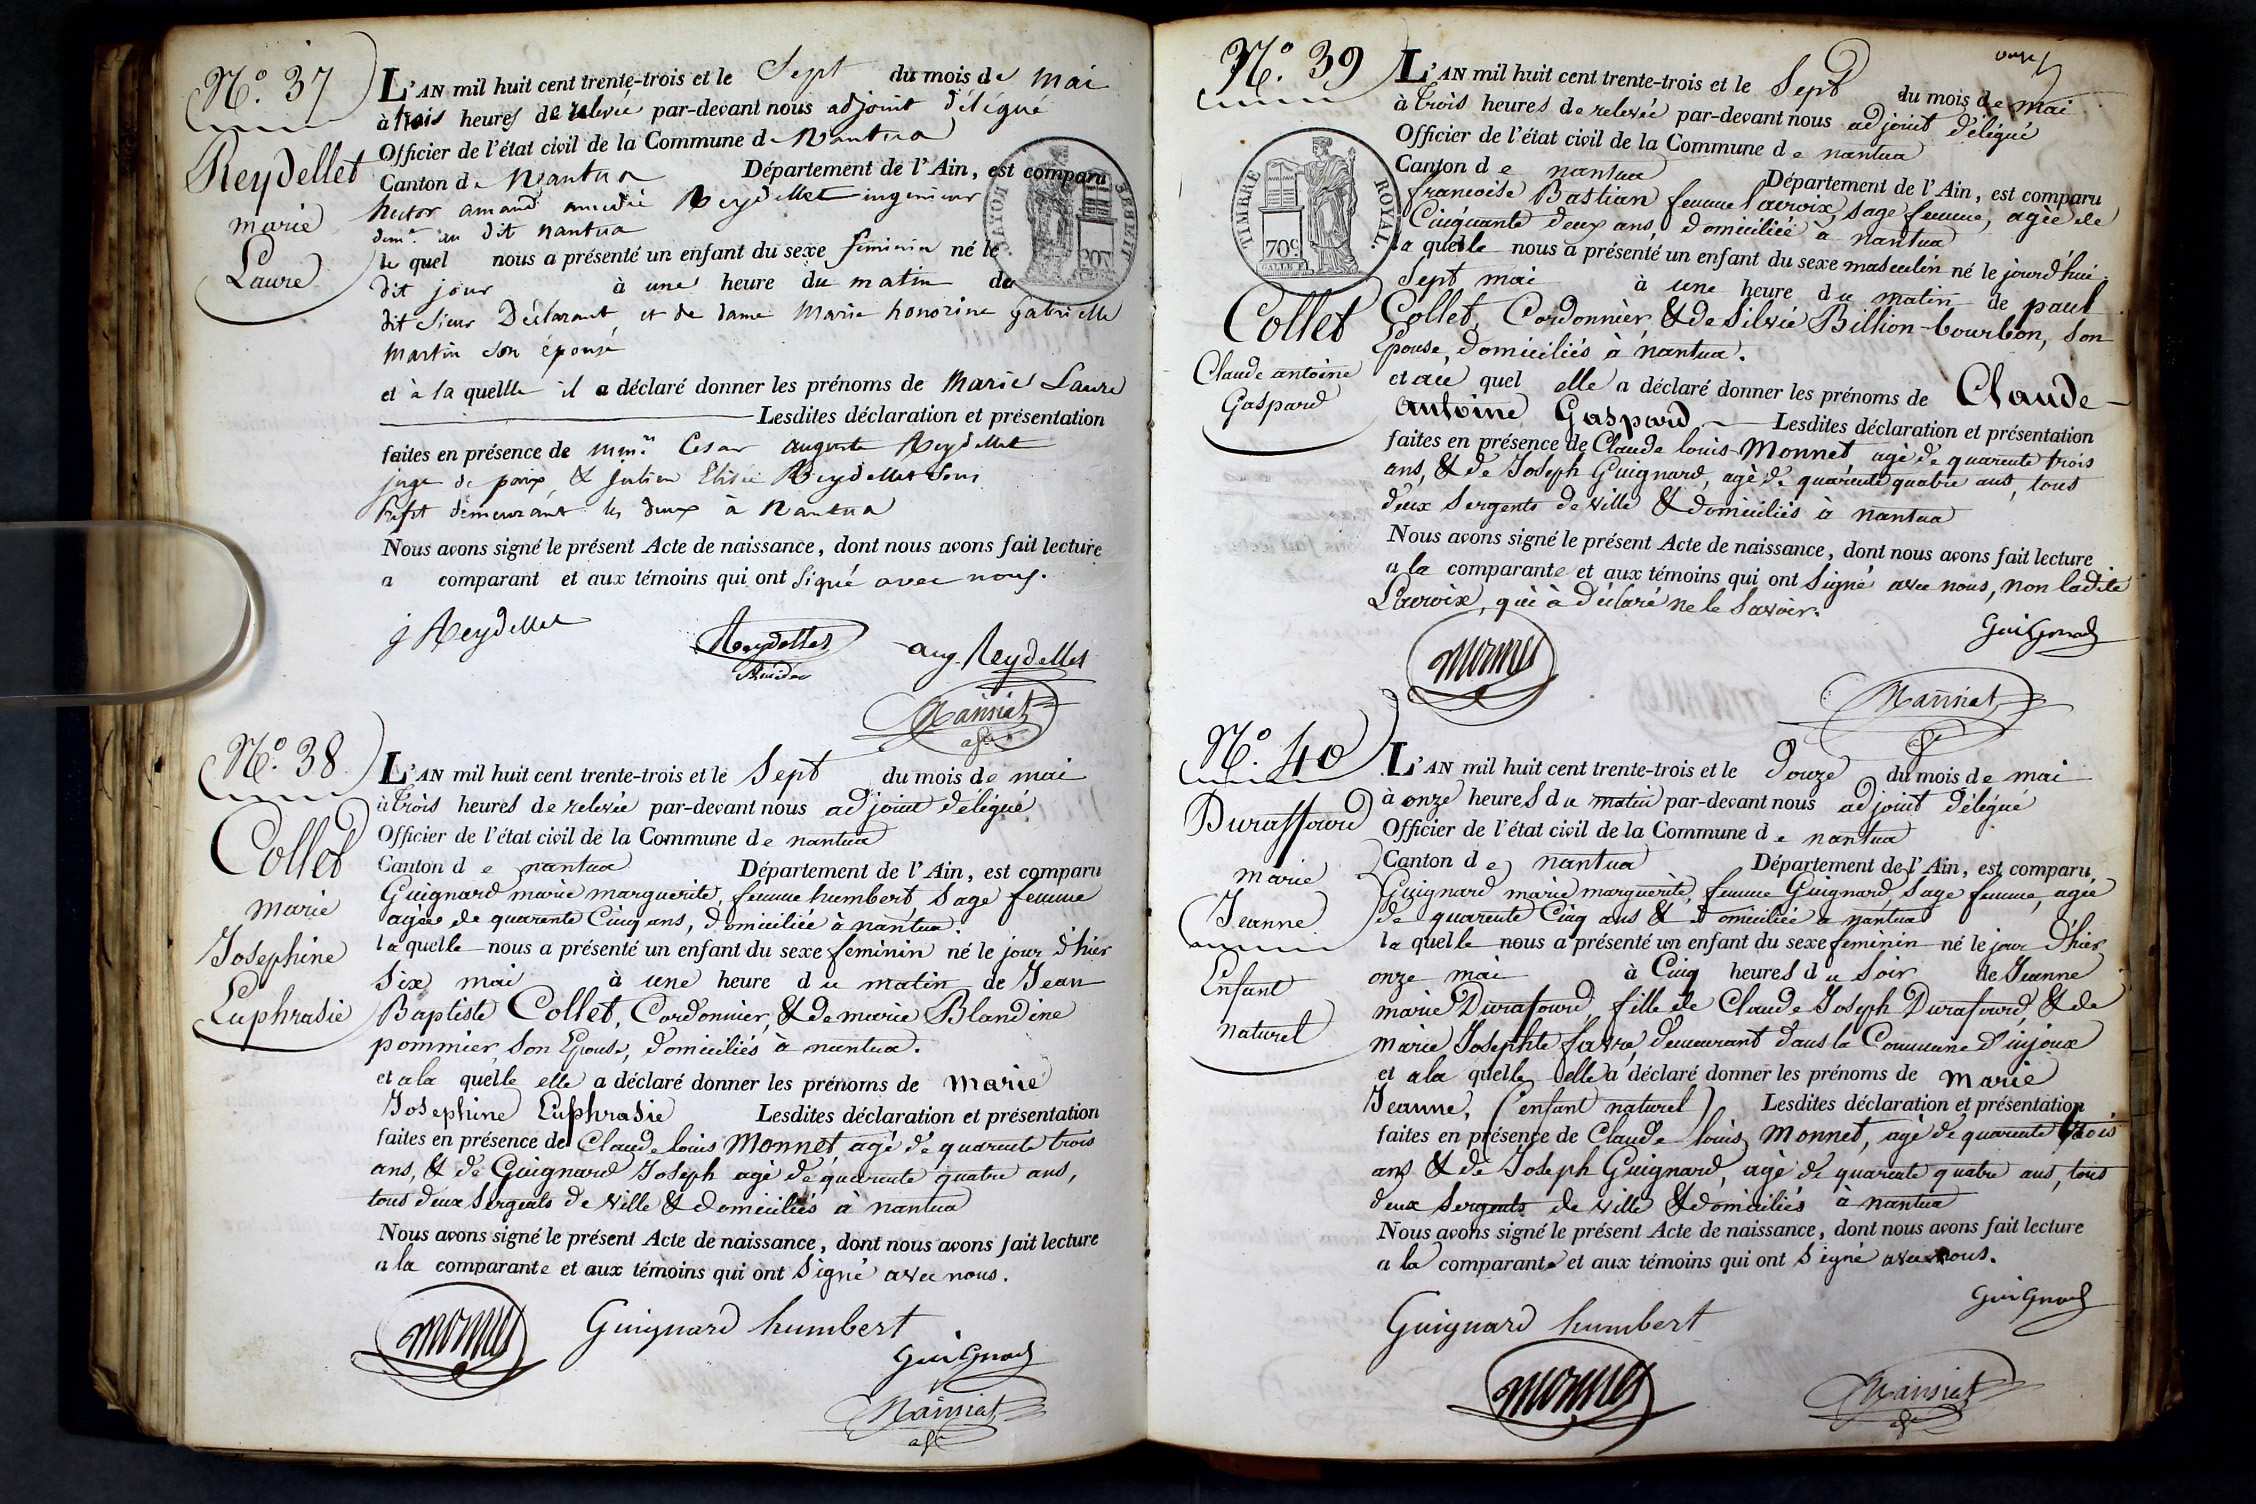 N.o 37
Reydellet
marie
Laure
L'AN mil huit cent trente-trois et le Sept du mois de mai
à trois heures de relevée par-devant nous adjoint délégué
Officier de l'état civil de la Commune de Nantua
Canton de Nantua Département de l'Ain, est comparu
hector amand amedée Reydellet ingenieur
dem.t au dit nantua
le quel nous a présenté un enfant du sexe feminin né le
dit jour à une heure du matin du
dit Sieur Déclarant et de dame Marie honorine gabrielle
Martin son épouse
et à la quelle il a déclaré donner les prénoms de Marie Laure
Lesdites déclaration et présentation
faites en présence de Cesar auguste Reydellet
juge de paix, & Julien Elisée Reydellet Sous
Préfet demeurant les deux à Nantua
Nous avons signé le présent Acte de naissance, dont nous avons fait lecture
a comparant et aux témoins qui ont signé avec nous.
j Reydellet
Reydellet
aug. Reydellet
Mainiat
N.o 38
Collet
marie
Josephine
Euphrasie
L'AN mil huit cent trente-trois et le Sept du mois de mai
à trois heures de relevée par-devant nous adjoint délégué
Officier de l'état civil de la Commune de nantua
Canton de nantua Département de l'Ain, est comparu
Guignard marie marguerite, femme humbert, Sage femme
agée de quarente Cinq ans, domiciliée à nantua.
la quelle nous a présenté un enfant du sexe feminin né le jour d'hier
Six mai à une heure du matin de Jean
Baptiste Collet, Cordonnier, & de marie Blandine
pommier, Son Epouse, domiciliés à nantua.
et a la quelle elle a déclaré donner les prénoms de marie
Josephine Euphrasie Lesdites déclaration et présentation
faites en présence de Claude louis Monnet, agé de quarente trois
ans, & de Guignard Joseph agé de quarente quatre ans,
tous deux Sergents de Ville & domiciliés à nantua
Nous avons signé le présent Acte de naissance, dont nous avons fait lecture
a la comparante et aux témoins qui ont Signé avec nous.
monnet
Guignard humbert
Guignard
Mainiat
onze
N.o 39
TIMBRE ROYAL.
70c
Collet
Claude antoine
Gaspard
L'AN mil huit cent trente-trois et le Sept du mois de mai
à trois heures de relevée par-devant nous adjoint délégué
Officier de l'état civil de la Commune de nantua
Canton de nantua Département de l'Ain, est comparu
francoise Bastian femme lacroix, Sage femme, agée de
Cinquante deux ans, domiciliée à nantua
la quelle nous a présenté un enfant du sexe masculin né le jourd'hui
Sept mai à une heure du matin de paul
Collet, Cordonnier, & de Silvie Billion-bourbon, Son
Epouse, domiciliés à nantua.
et au quel elle a déclaré donner les prénoms de Claude
antoine Gaspard. Lesdites déclaration et présentation
faites en présence de Claude louis Monnet agé de quarente trois
ans, & de Joseph Guignard, agé de quarente quatre ans, tous
deux Sergents de Ville & domiciliés à nantua
Nous avons signé le présent Acte de naissance, dont nous avons fait lecture
a la comparante et aux témoins qui ont Signé avec nous, non ladite
Lacroix, qui à déclaré ne le Savoir.
monnet
Guignard
Mainiat
N.o 40
Duraffourd
marie
Jeanne
Enfant
naturel
L'AN mil huit cent trente-trois et le douze du mois de mai
à onze heures du matin par-devant nous adjoint délégué
Officier de l'état civil de la Commune de nantua
Canton de nantua Département de l'Ain, est comparu
Guignard marie marguerite, femme Guignard, Sage femme, agée
de quarente Cinq ans & domiciliée a nantua
la quelle nous a présenté un enfant du sexe feminin né le jour d'hier
onze mai à Cinq heures du Soir de Jeanne
marie Durafourd, fille de Claude Joseph Durafourd, & de
marie Josephte favre, demeurant dans la Commune d'injoux
et a la quelle elle a déclaré donner les prénoms de marie
Jeanne, (enfant naturel) Lesdites déclaration et présentation
faites en présence de Claude louis Monnet, agé de quarente trois
ans & de Joseph Guignard, agé de quarente quatre ans, tous
deux Sergents de Ville & domiciliés à nantua
Nous avons signé le présent Acte de naissance, dont nous avons fait lecture
a la comparante et aux témoins qui ont Signé avec nous.
Guignard humbert
Guignard
monnet
Mainiat